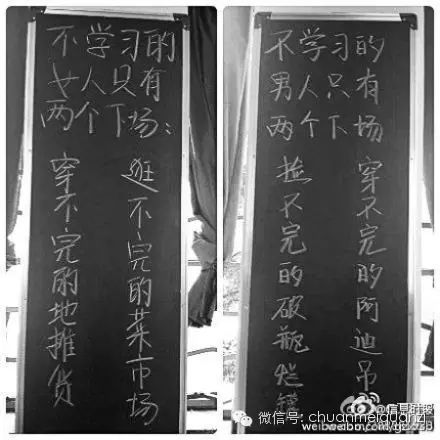 不学习的
女人只有
两个下场：
逛不完的菜市场
穿不完的地摊货
不学习的
男人只有
两个下场
穿不完的阿迪吊
捡不完的破瓶烂罐
@信息时报
微信号: chuanmeiquanzi